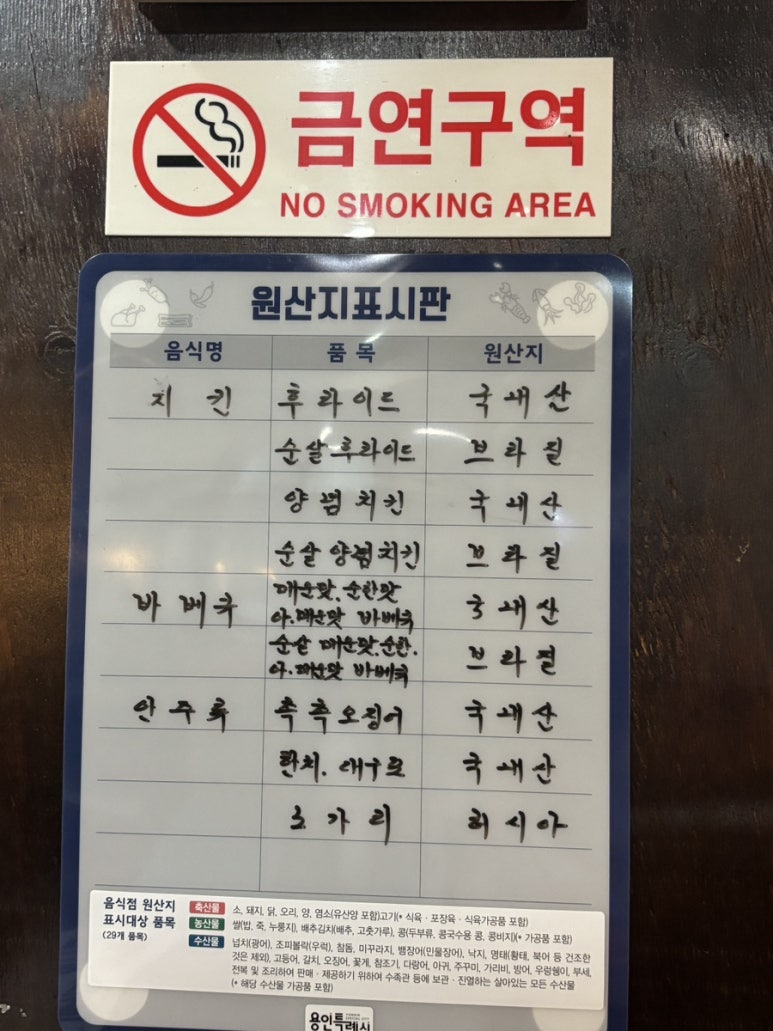 금연구역
NO SMOKING AREA
원산지표시판
음식명 품목 원산지
지킨 후라이드 국내산
순살후라이드 브라질
양념치킨 국내산
순살양념치킨 브라질
바베큐 매운맛.순한맛 국내산
아.매운맛 바베큐
순살 매운맛.순한. 브라질
아.매운맛 바베큐
안주류 촉촉오징어 국내산
한치. 대구포 국내산
노가리 러시아
음식점 원산지
표시대상 품목
(29개 품목)
축산물 소, 돼지, 닭, 오리, 양, 염소(유산양 포함)고기(* 식육 · 포장육 · 식육가공품 포함)
농산물 쌀(밥, 죽, 누룽지), 배추김치(배추, 고춧가루), 콩(두부류, 콩국수용 콩, 콩비지)(* 가공품 포함)
수산물 넙치(광어), 조피볼락(우럭), 참돔, 미꾸라지, 뱀장어(민물장어), 낙지, 명태(황태, 북어 등 건조한
것은 제외), 고등어, 갈치, 오징어, 꽃게, 참조기, 다랑어, 아귀, 주꾸미, 가리비, 방어, 우렁쉥이, 부세,
전복 및 조리하여 판매 · 제공하기 위하여 수족관 등에 보관 · 진열하는 살아있는 모든 수산물
(* 해당 수산물 가공품 포함)
용인특례시